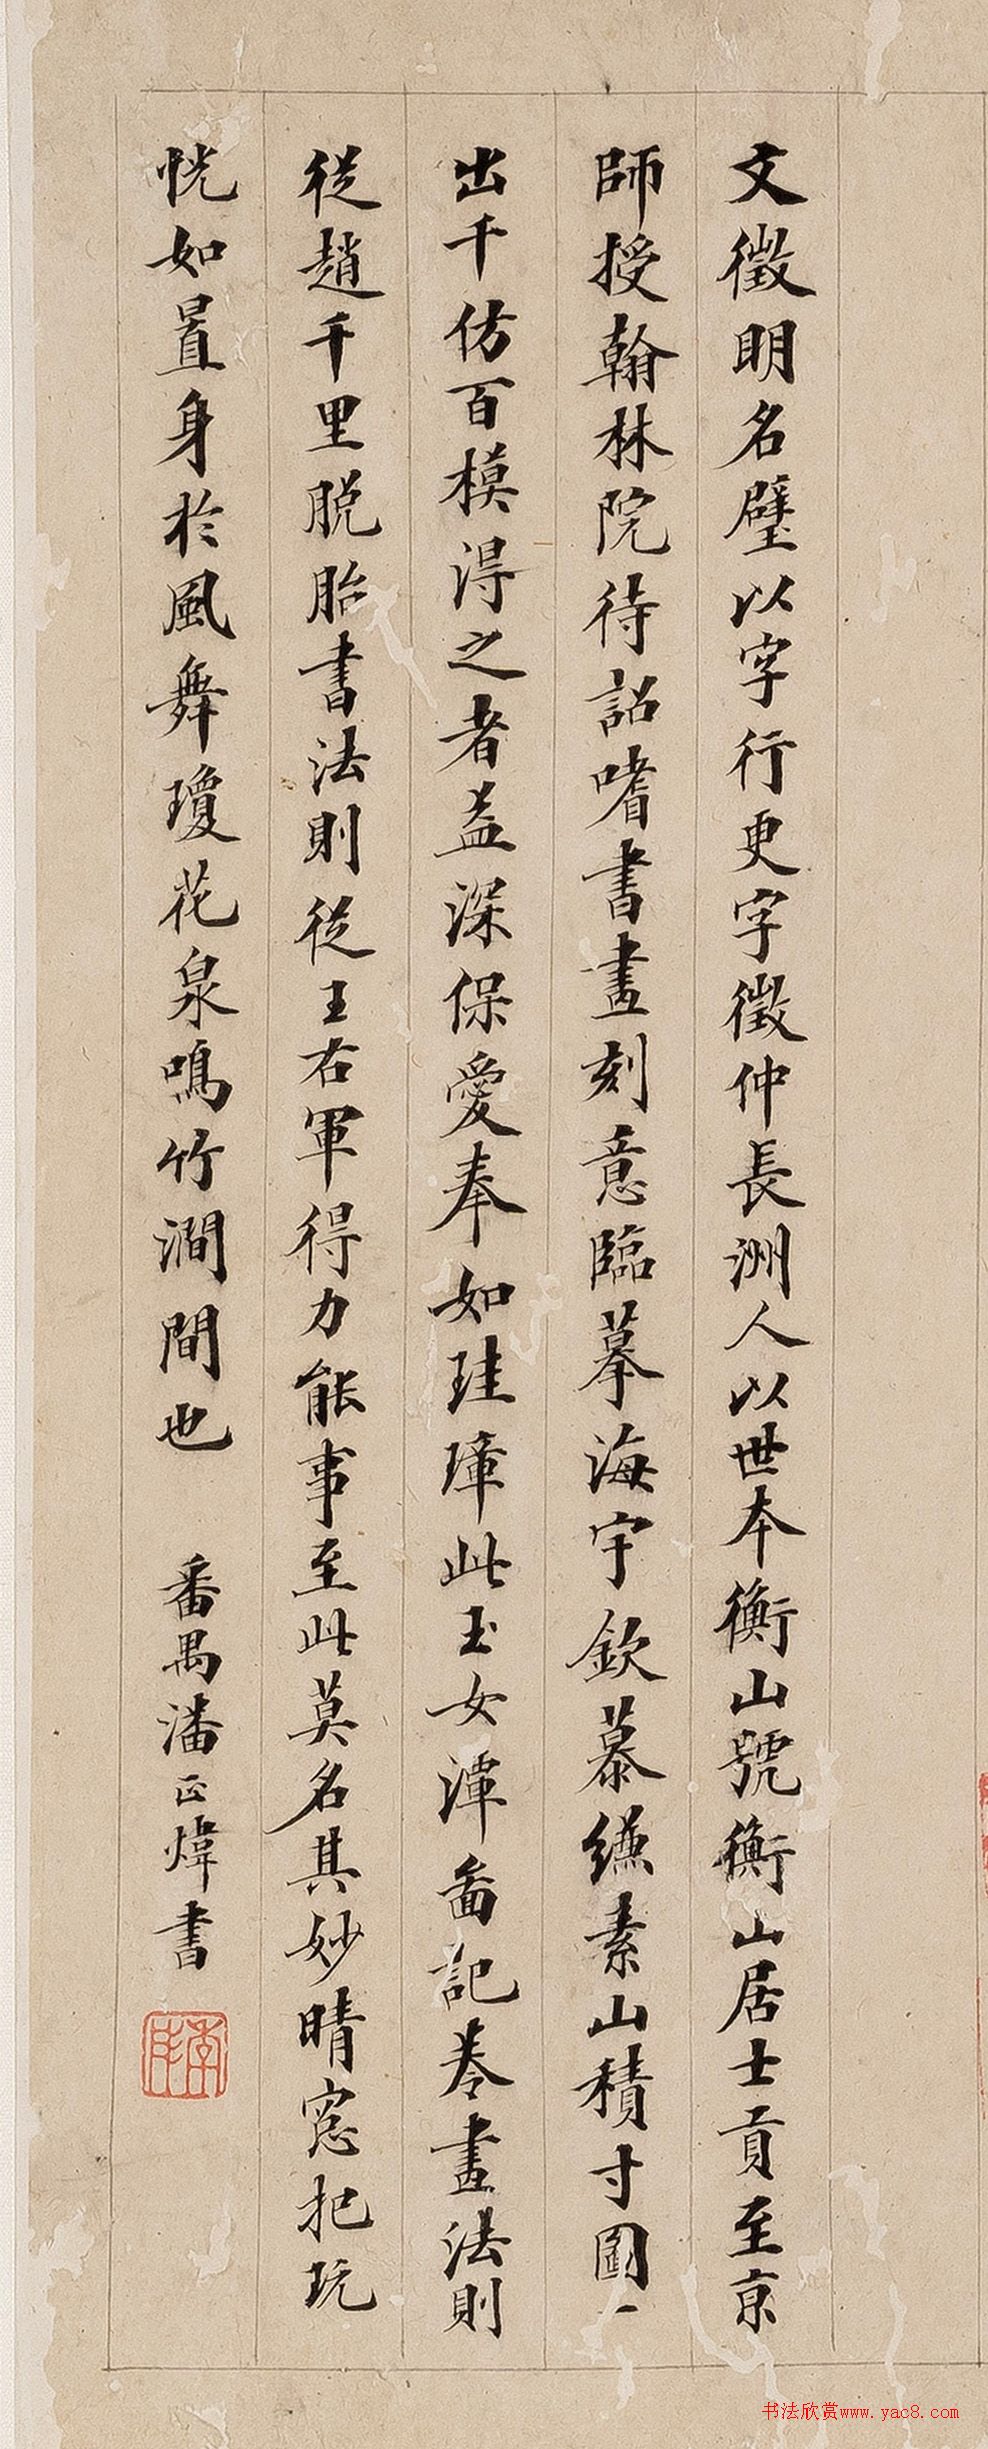 文徵明名璧以字行更字徵仲長洲人以世本衡山號衡山居士貢至京
師授翰林院待詔嗜書畫刻意臨摹海宇欽慕縑素山積寸圖一
出千仿百模淂之者益深保愛奉如珪璋此玉女潭啚記卷畫法則
從趙千里脱胎書法則從王右軍得力能事至此莫名其妙晴窓把玩
恍如置身於風舞瓊花泉鳴竹澗間也
番禺潘正煒書
书法欣赏www.yac8.com